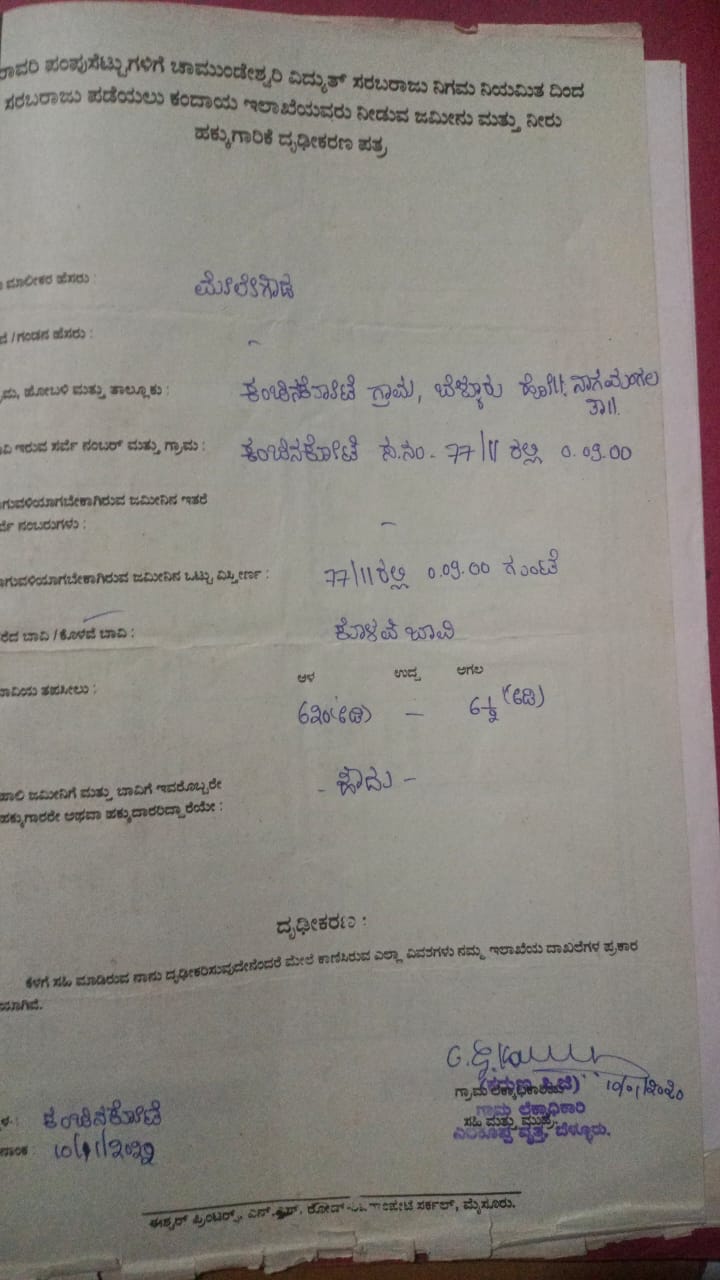 ರಾವರಿ ಪಂಪುಸೆಟ್ಟುಗಳಿಗೆ ಚಾಮುಂಡೇಶ್ವರಿ ವಿದ್ಯುತ್ ಸರಬರಾಜು ನಿಗಮ ನಿಯಮಿತ ದಿಂದ
ಸರಬರಾಜು ಪಡೆಯಲು ಕಂದಾಯ ಇಲಾಖೆಯವರು ನೀಡುವ ಜಮೀನು ಮತ್ತು ನೀರು
ಹಕ್ಕುಗಾರಿಕೆ ದೃಢೀಕರಣ ಪತ್ರ
ಮಾಲೀಕರ ಹೆಸರು : ಮೋಲೇಗೌಡ
/ಗಂಡನ ಹೆಸರು : -
ಮ, ಹೋಬಳಿ ಮತ್ತು ತಾಲ್ಲೂಕು : ಕಂಚಿನಕೋಟೆ ಗ್ರಾಮ, ಬೆಳ್ಳೂರು ಹೋ||. ನಾಗಮಂಗಲ
ತಾ||.
ವಿ ಇರುವ ಸರ್ವೆ ನಂಬರ್ ಮತ್ತು ಗ್ರಾಮ : ಕಂಚಿನಕೋಟೆ ಸ.ನಂ. 77/11 ರಲ್ಲಿ 0.09.00
ಾಗುವಳಿಯಾಗಬೇಕಾಗಿರುವ ಜಮೀನಿನ ಇತರೆ
ರ್ವೆ ನಂಬರುಗಳು : -
ಾಗುವಳಿಯಾಗಬೇಕಾಗಿರುವ ಜಮೀನಿನ ಒಟ್ಟು ವಿಸ್ತೀರ್ಣ : 77/11 ರಲ್ಲಿ 0.09.00 ಗುಂಟೆ
ರೆದ ಬಾವಿ / ಕೊಳವೆ ಬಾವಿ : ಕೊಳವೆ ಬಾವಿ
ಆಳ ಉದ್ದ ಅಗಲ
ಬಾವಿಯ ತಪಸೀಲು : 620 (ಅಡಿ) - 6½ (ಅಡಿ)
ಹಾಲಿ ಜಮೀನಿಗೆ ಮತ್ತು ಬಾವಿಗೆ ಇವರೊಬ್ಬರೇ - ಹೌದು -
ಹಕ್ಕುಗಾರರೇ ಅಥವಾ ಹಕ್ಕುದಾರರಿದ್ದಾರೆಯೇ :
ದೃಢೀಕರಣ :
ಕೆಳಗೆ ಸಹಿ ಮಾಡಿರುವ ನಾನು ದೃಢೀಕರಿಸುವುದೇನೆಂದರೆ ಮೇಲೆ ಕಾಣಿಸಿರುವ ಎಲ್ಲಾ ವಿವರಗಳು ನಮ್ಮ ಇಲಾಖೆಯ ದಾಖಲೆಗಳ ಪ್ರಕಾರ
ಯಾಗಿವೆ.
ಗ್ರಾಮ ಲೆಕ್ಕಾಧಿಕಾರಿಯ 10/01/2020
ಗ್ರಾಮ ಲೆಕ್ಕಾಧಿಕಾರಿ
ಸಹಿ ಮತ್ತು ಮುದ್ರೆ.
ವೃತ್ತ, ಬೆಳ್ಳೂರು.
ಳ : ಕಂಚಿನಕೋಟೆ
ನಾಂಕ : 10/01/2020
ಈಶ್ವರ್ ಪ್ರಿಂಟರ್ಸ್, ಎನ್.ಎಸ್. ರೋಡ್ ಸರ್ಕಲ್, ಮೈಸೂರು.